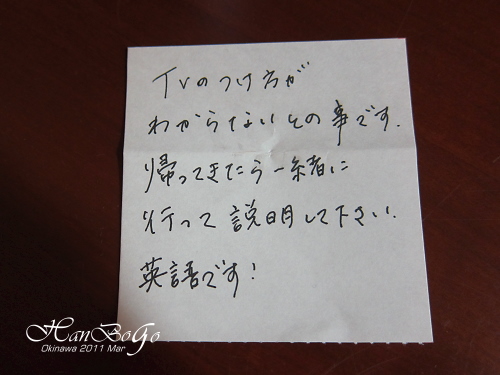 TVのつけ方が
わからないとの事です.
帰ってきたら一緒に
行って説明して下さい.
英語です!
HanBoGo
Okinawa 2011 Mar